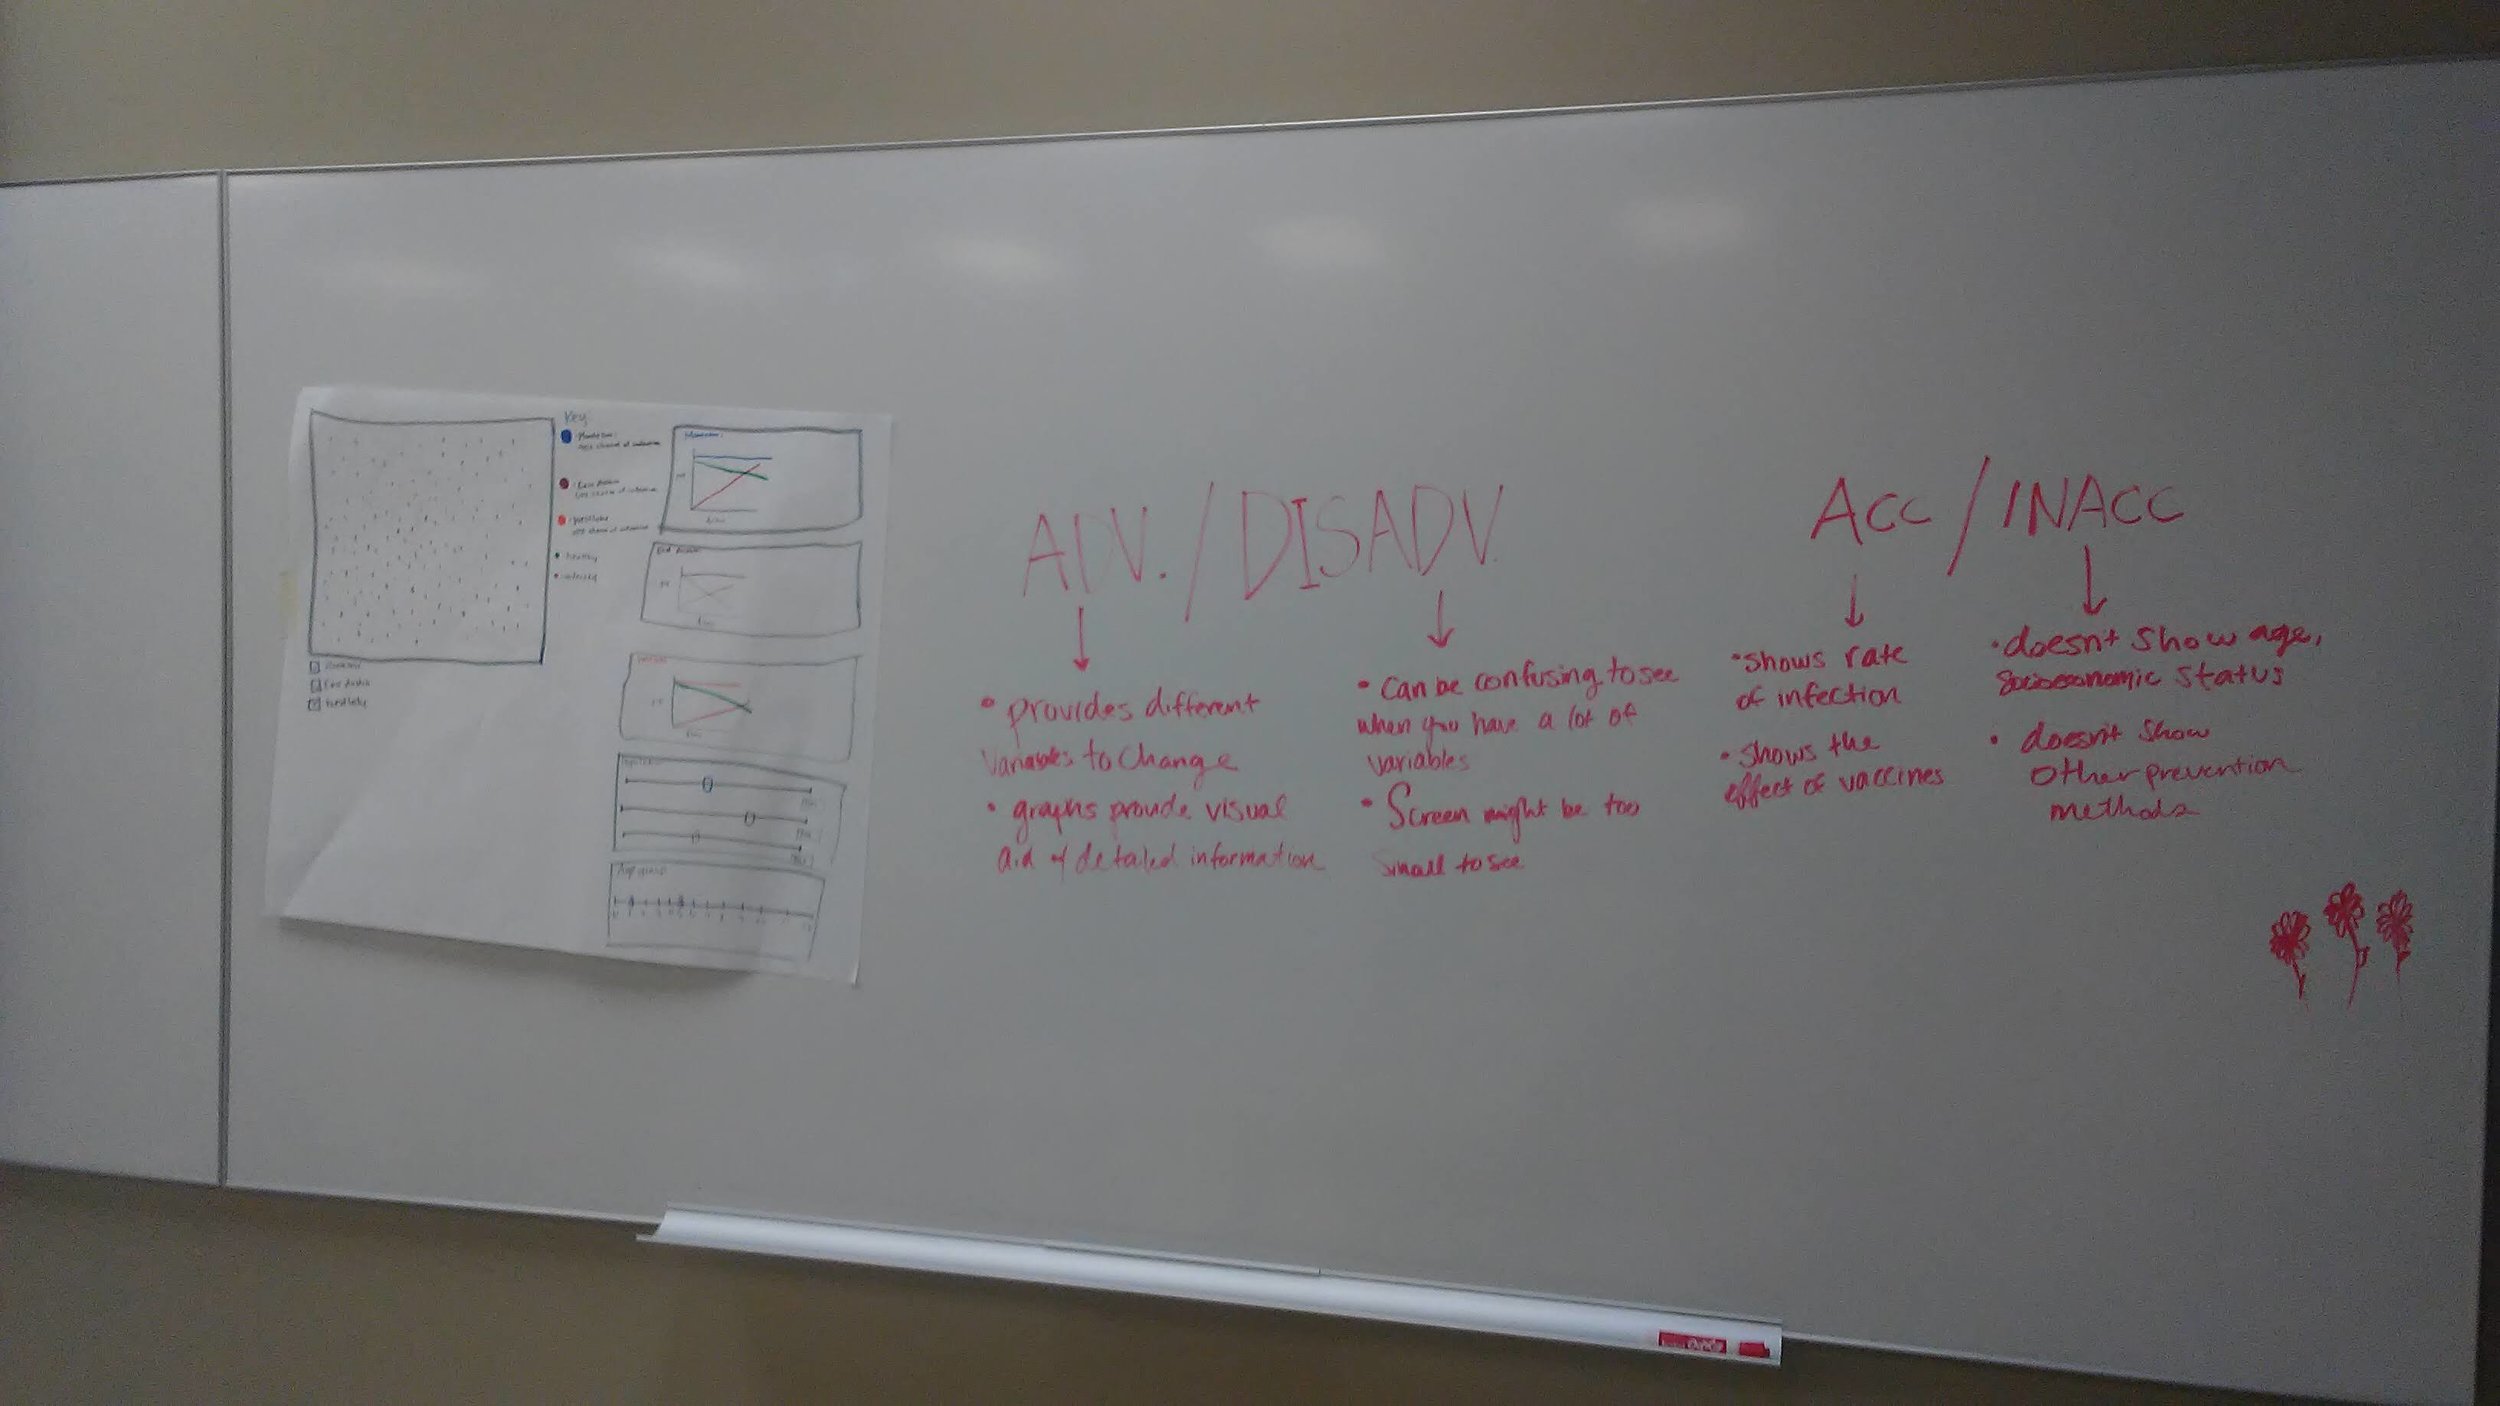 Key
healthy
East Austin
Age group
ADV. / DISADV.
• provides different
variables to change
• graphs provide visual
aid of detailed information
• Can be confusing to see
when you have a lot of
variables
• Screen might be too
small to see
ACC / INACC
• shows rate
of infection
• shows the
effect of vaccines
• doesn't show age,
socioeconomic status
• doesn't show
other prevention
methods